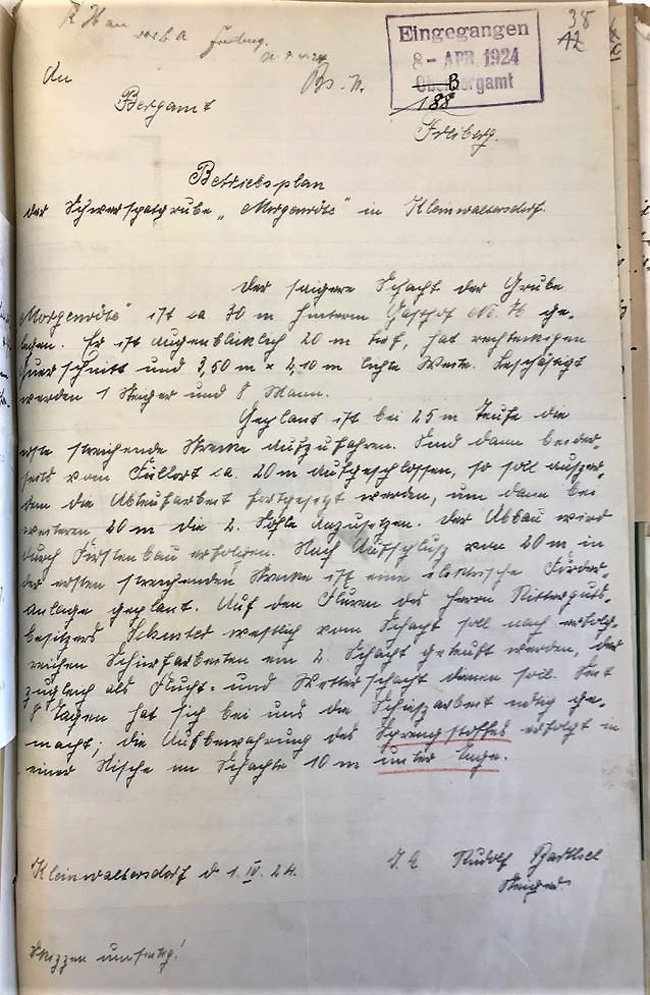 Eingegangen
8 - APR. 1924
Oberbergamt
B
188
38
42
An
Bergamt
Freiberg.
Betriebsplan
der Schwerspatgrube „Morgenröte" in Kleinwaltersdorf.
Der saigere Schacht der Grube
„Morgenröte" ist ca 30 m hinterm Gasthof No. 76 ge-
legen. Er ist augenblicklich 20 m tief, hat rechteckigen
Querschnitt und 3,50 m × 2,10 m lichte Weite. Beschäftigt
werden 1 Steiger und 8 Mann.
Geplant ist bei 25 m Teufe die
erste streichende Strecke aufzufahren. Sind dann beider-
seits vom Füllort ca. 20 m aufgeschlossen, so soll auszer-
dem die Abteufarbeit fortgesetzt werden, um dann bei
weiteren 20 m die 2. Sohle anzusetzen. Der Abbau wird
durch Firstenbau erfolgen. Nach Aufschlusz von 20 m in
der ersten streichenden Strecke ist eine elektrische Förder-
anlage geplant. Auf den Fluren des Herrn Ritterguts-
besitzers westlich vom Schacht soll nach erfolg-
reichen Schürfarbeiten ein 2. Schacht geteuft werden, der
zugleich als Flucht- und Wetterschacht dienen soll. Seit
8 Tagen hat sich bei uns die Schieszarbeit nötig ge-
macht; die Aufbewahrung des Sprengstoffes erfolgt in
einer Nische im Schachte 10 m unter Tage.
Kleinwaltersdorf d 1. IV. 24.
Rudolf Barthel
Steiger.
Skizzen umseitig!